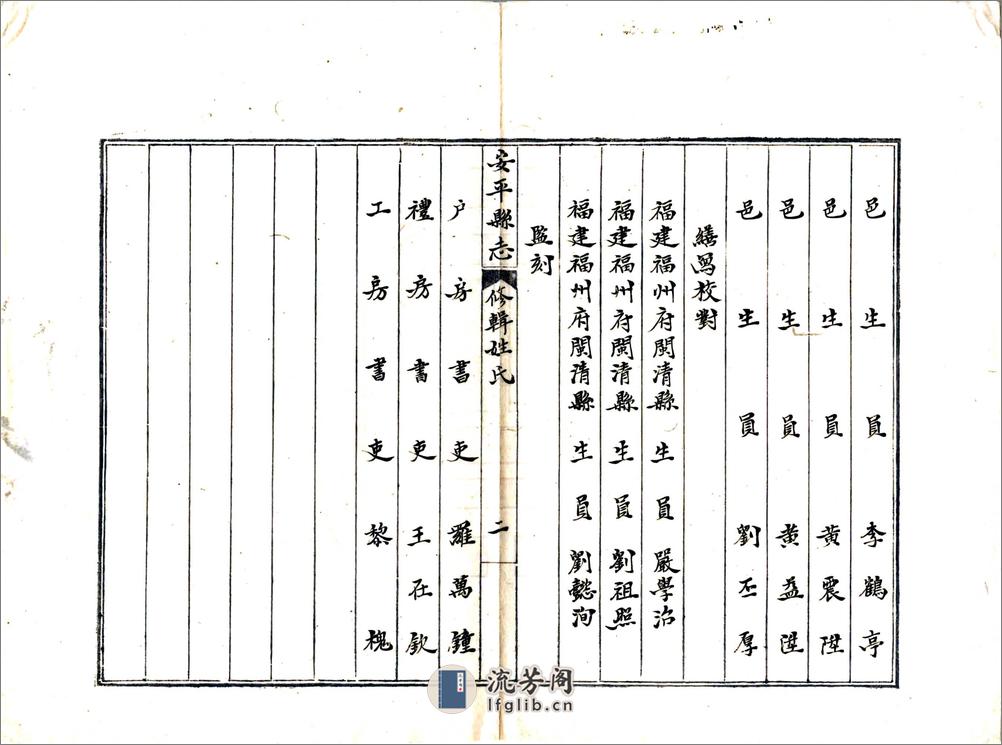 邑生員李鶴亭
邑生員黃震陞
邑生員黃益陞
邑生員劉丕厚
繕寫校對
福建福州府閩清縣生員嚴學治
福建福州府閩清縣生員劉祖照
福建福州府閩清縣生員劉懿洵
監刻
安平縣志 修輯姓氏 二
戶房書吏羅萬鐘
禮房書吏王在欽
工房書吏黎槐
流芳阁
lfglib.cn